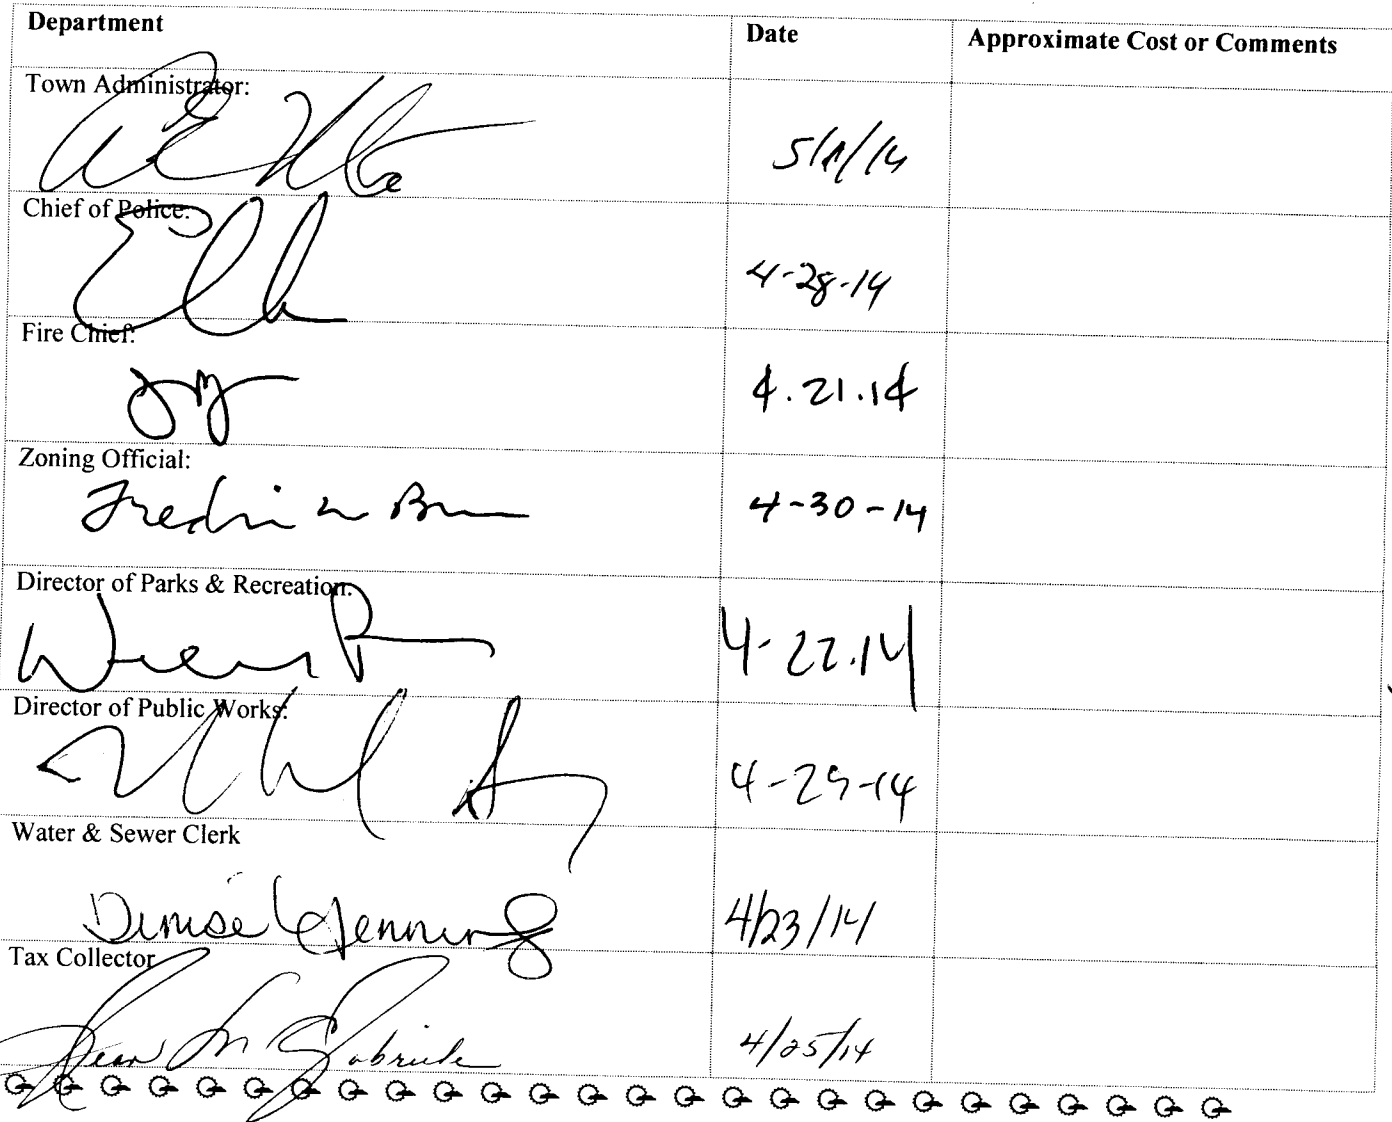 Department Date Approximate Cost or Comments
Town Administrator:
5/1/14
Chief of Police:
4-28-14
Fire Chief:
4.21.14
Zoning Official:
4-30-14
Director of Parks & Recreation:
4-22.14
Director of Public Works:
4-29-14
Water & Sewer Clerk
Denise Jennings 4/23/14
Tax Collector
4/25/14